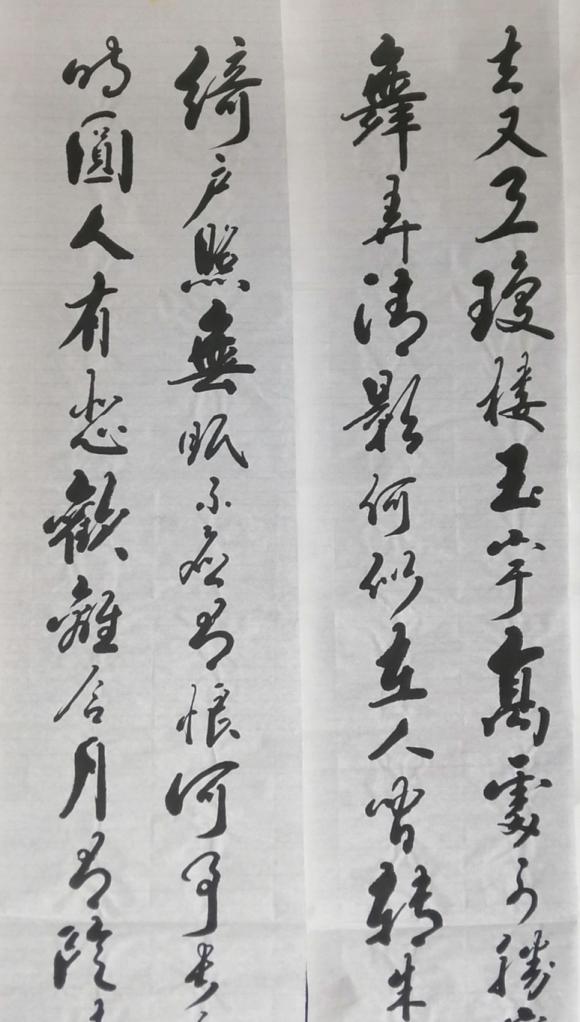 去又恐瓊楼玉宇高處不勝
舞弄清影何似在人間轉朱
綺户照無眠不應有恨何事長
時圓人有悲歡離合月有陰